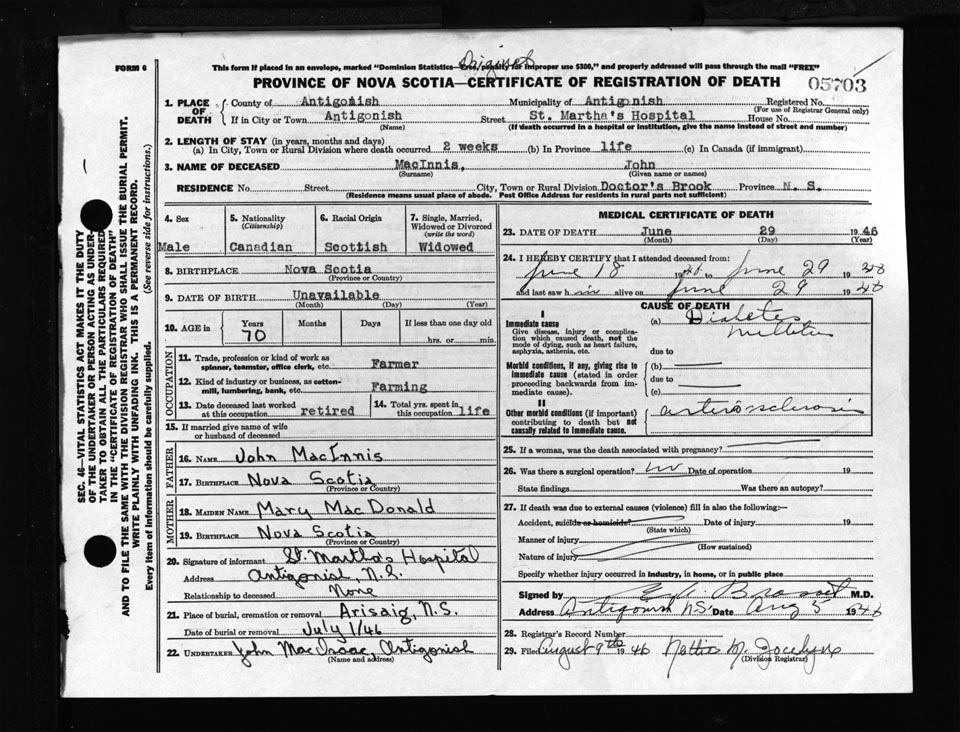 FORM 6
This form if placed in an envelope, marked "Dominion Statistics—Free, penalty for improper use $300," and properly addressed will pass through the mail "FREE"
Original
PROVINCE OF NOVA SCOTIA—CERTIFICATE OF REGISTRATION OF DEATH
05703
1. PLACE OF DEATH County of Antigonish Municipality of Antigonish Registered No.
(For use of Registrar General only)
If in City or Town Antigonish Street St. Martha's Hospital House No.
(Name) (If death occurred in a hospital or institution, give the name instead of street and number)
2. LENGTH OF STAY (in years, months and days)
(a) In City, Town or Rural Division where death occurred 2 weeks (b) In Province life (c) In Canada (if immigrant)
3. NAME OF DECEASED MacInnis, John
(Surname) (Given name or names)
RESIDENCE No. Street City, Town or Rural Division Doctor's Brook Province N. S.
(Residence means usual place of abode. Post Office Address for residents in rural parts not sufficient)
4. Sex
Male
5. Nationality
(Citizenship)
Canadian
6. Racial Origin
Scottish
7. Single, Married,
Widowed or Divorced
(write the word)
Widowed
8. BIRTHPLACE Nova Scotia
(Province or Country)
9. DATE OF BIRTH Unavailable
(Month) (Day) (Year)
10. AGE in Years Months Days If less than one day old
70 hrs. or min.
OCCUPATION
11. Trade, profession or kind of work as
spinner, teamster, office clerk, etc. Farmer
12. Kind of industry or business, as cotton-
mill, lumbering, bank, etc. Farming
13. Date deceased last worked
at this occupation retired
14. Total yrs. spent in
this occupation life
15. If married give name of wife
or husband of deceased
FATHER
16. NAME John MacInnis
17. BIRTHPLACE Nova Scotia
(Province or Country)
MOTHER
18. MAIDEN NAME Mary MacDonald
19. BIRTHPLACE Nova Scotia
(Province or Country)
20. Signature of informant St. Martha's Hospital
Address Antigonish, N.S.
Relationship to deceased None
21. Place of burial, cremation or removal Arisaig, N.S.
Date of burial or removal July 1/46
22. UNDERTAKER John MacIsaac, Antigonish
(Name and address)
MEDICAL CERTIFICATE OF DEATH
23. DATE OF DEATH June 29 1946
(Month) (Day) (Year)
24. I HEREBY CERTIFY that I attended deceased from:
June 18 1946 to June 29 1946
and last saw him alive on June 29 1946
CAUSE OF DEATH
I
Immediate cause
Give disease, injury or complica-
tion which caused death, not the
mode of dying, such as heart failure,
asphyxia, asthenia, etc.
(a) Diabetes
Mellitus
due to
Morbid conditions, if any, giving rise to
immediate cause (stated in order
proceeding backwards from im-
mediate cause).
(b)
due to
(c)
II
Other morbid conditions (if important)
contributing to death but not
causally related to immediate cause.
arteriosclerosis
25. If a woman, was the death associated with pregnancy?
26. Was there a surgical operation? no Date of operation 19
State findings Was there an autopsy?
27. If death was due to external causes (violence) fill in also the following:—
Accident, suicide or homicide? Date of injury 19
(State which)
Manner of injury
(How sustained)
Nature of injury
Specify whether injury occurred in industry, in home, or in public place
Signed by M.D.
Address Antigonish NS Date Aug 5 1946
28. Registrar's Record Number
29. Filed August 9th 1946 Nettie M. Jocelyn
(Division Registrar)
SEC. 46—VITAL STATISTICS ACT MAKES IT THE DUTY
OF THE UNDERTAKER OR PERSON ACTING AS UNDER-
TAKER TO OBTAIN ALL THE PARTICULARS REQUIRED
IN THE "CERTIFICATE OF REGISTRATION OF DEATH"
AND TO FILE THE SAME WITH THE DIVISION REGISTRAR WHO SHALL ISSUE THE BURIAL PERMIT.
WRITE PLAINLY WITH UNFADING INK. THIS IS A PERMANENT RECORD.
Every item of information should be carefully supplied. (See reverse side for instructions.)